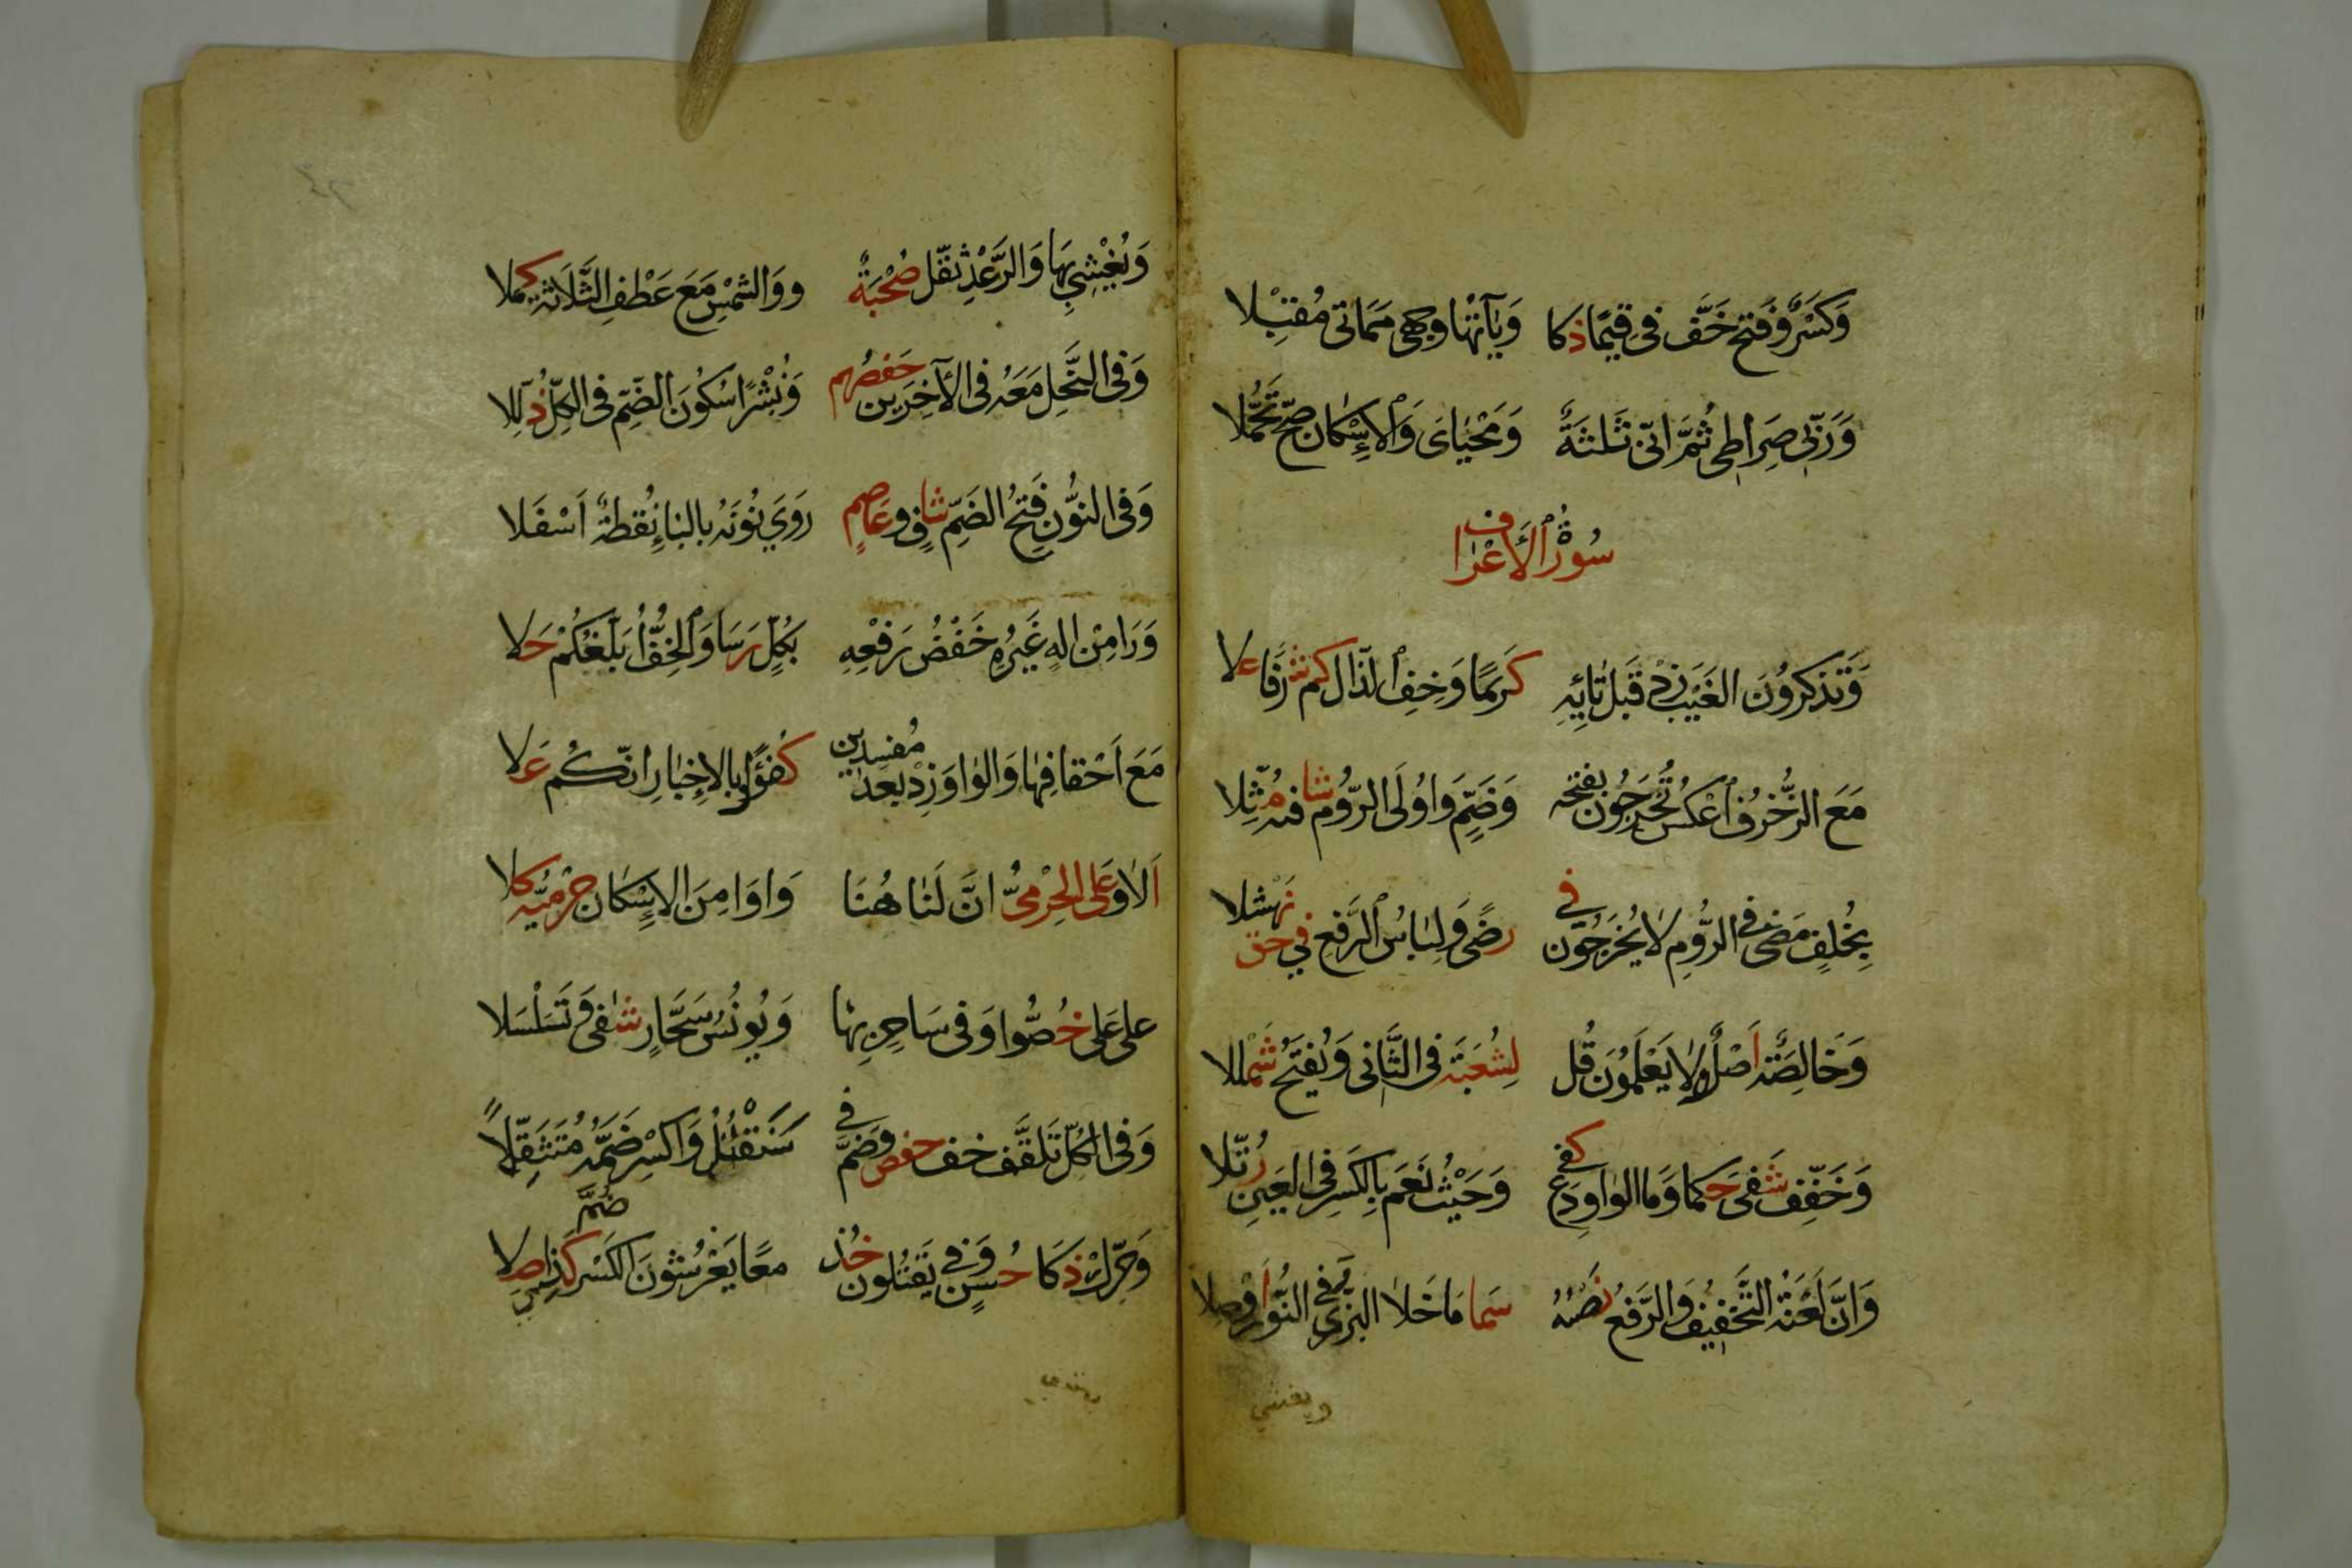 وَكَسْرٌ وَفَتْحٌ خَفَّ فِي قِيَمًا ذكا وَيَآتُهَا وَجْهِي مَمَاتِي مُقْبِلَا
وَرَبِّي صِرَاطِي ثُمَّ اِنِّي ثَلٰثَةٌ وَمَحْيَايَ وَالْاِسْكَانُ صَحَّ تَحَمُّلَا
سُورَةُ الْاَعْرَاف
وَتَذَكَّرُونَ الْغَيْبَ زِدْ قَبْلَ تَائِهِ كَرِيمًا وَخِفُّ الذَّالِ كَمْ شَرَفًا عَلَا
مَعَ الزُّخْرُفِ اعْكِسْ تُخْرَجُونَ بِفَتْحَةٍ وَضَمٍّ وَاُولَى الرُّومِ شَافِيهِ مُثِّلَا
بِخُلْفٍ مَضَى فِي الرُّومِ لَا يُخْرَجُونَ فِي رِضًى وَلِبَاسُ الرَّفْعِ فِي حَقِّ نَهْشَلَا
وَخَالِصَةٌ اَصْلٌ وَلَا يَعْلَمُونَ قُلْ لِشُعْبَةَ فِي الثَّانِي وَيُفْتَحُ شَمْلَلَا
وَخَفِّفْ شَفَى حُكْمًا وَمَا الْوَاوَ دَعْ كَفَى وَحَيْثُ نَعَمْ بِالْكَسْرِ فِي الْعَيْنِ رُتِّلَا
وَاَنْ لَعْنَةُ التَّخْفِيفُ وَالرَّفْعُ نَصُّهُ سَمَا مَا خَلَا الْبَزِّي وَفِي النُّورِ اُوصِلَا
ويغشي
وَيُغْشِي بِهَا وَالرَّعْدِ ثَقَّلَ صُحْبَةٌ ووَالشَّمْسُ مَعَ عَطْفِ الثَّلَاثَةِ كَمَّلَا
وَفِي النَّحْلِ مَعْهُ فِي الْاَخِيرَيْنِ حَفْصُهُمْ وَنُشْرًا سُكُونُ الضَّمِّ فِي الْكُلِّ ذُلِّلَا
وَفِي النُّونِ فَتْحُ الضَّمِّ شَافٍ وَعَاصِمٌ رَوَى نُونَهُ بِالْبَاءِ نُقْطَةً اَسْفَلَا
وَرَا مِنْ اِلٰهٍ غَيْرُهُ خَفْضُ رَفْعِهِ بِكُلٍّ رَسَا وَالْخِفُّ اُبَلِّغُكُمْ حَلَا
مَعَ اَحْقَافِهَا وَالْوَاوَ زِدْ بَعْدَ مُفْسِدِينَ كُفْؤًا وَبِالْاِخْبَارِ اِنَّكُمْ عَلَا
اَلَا وَعَلَى الْحِرْمِيُّ اِنَّ لَنَا هُنَا وَاَوَاَمِنَ الْاِسْكَانُ حِرْمِيُّهُ كَلَا
عَلَيَّ عَلَى خُصُّوا وَفِي سَاحِرٍ بِهَا وَيُونُسَ سَحَّارٍ شَفَى وَتَسَلْسَلَا
وَفِي الْكُلِّ تَلْقَفْ خِفُّ حَفْصٍ وَضُمَّ فِي سَنَقْتُلُ وَاكْسِرْ ضَمَّهُ مُتَثَقِّلًا
وَحَرِّكْ ذَكَا حُسْنٍ وَفِي يَقْتُلُونَ خُذْ مَعًا يَعْرِشُونَ الْكَسْرُ ضُمَّ كَذِي صِلَا